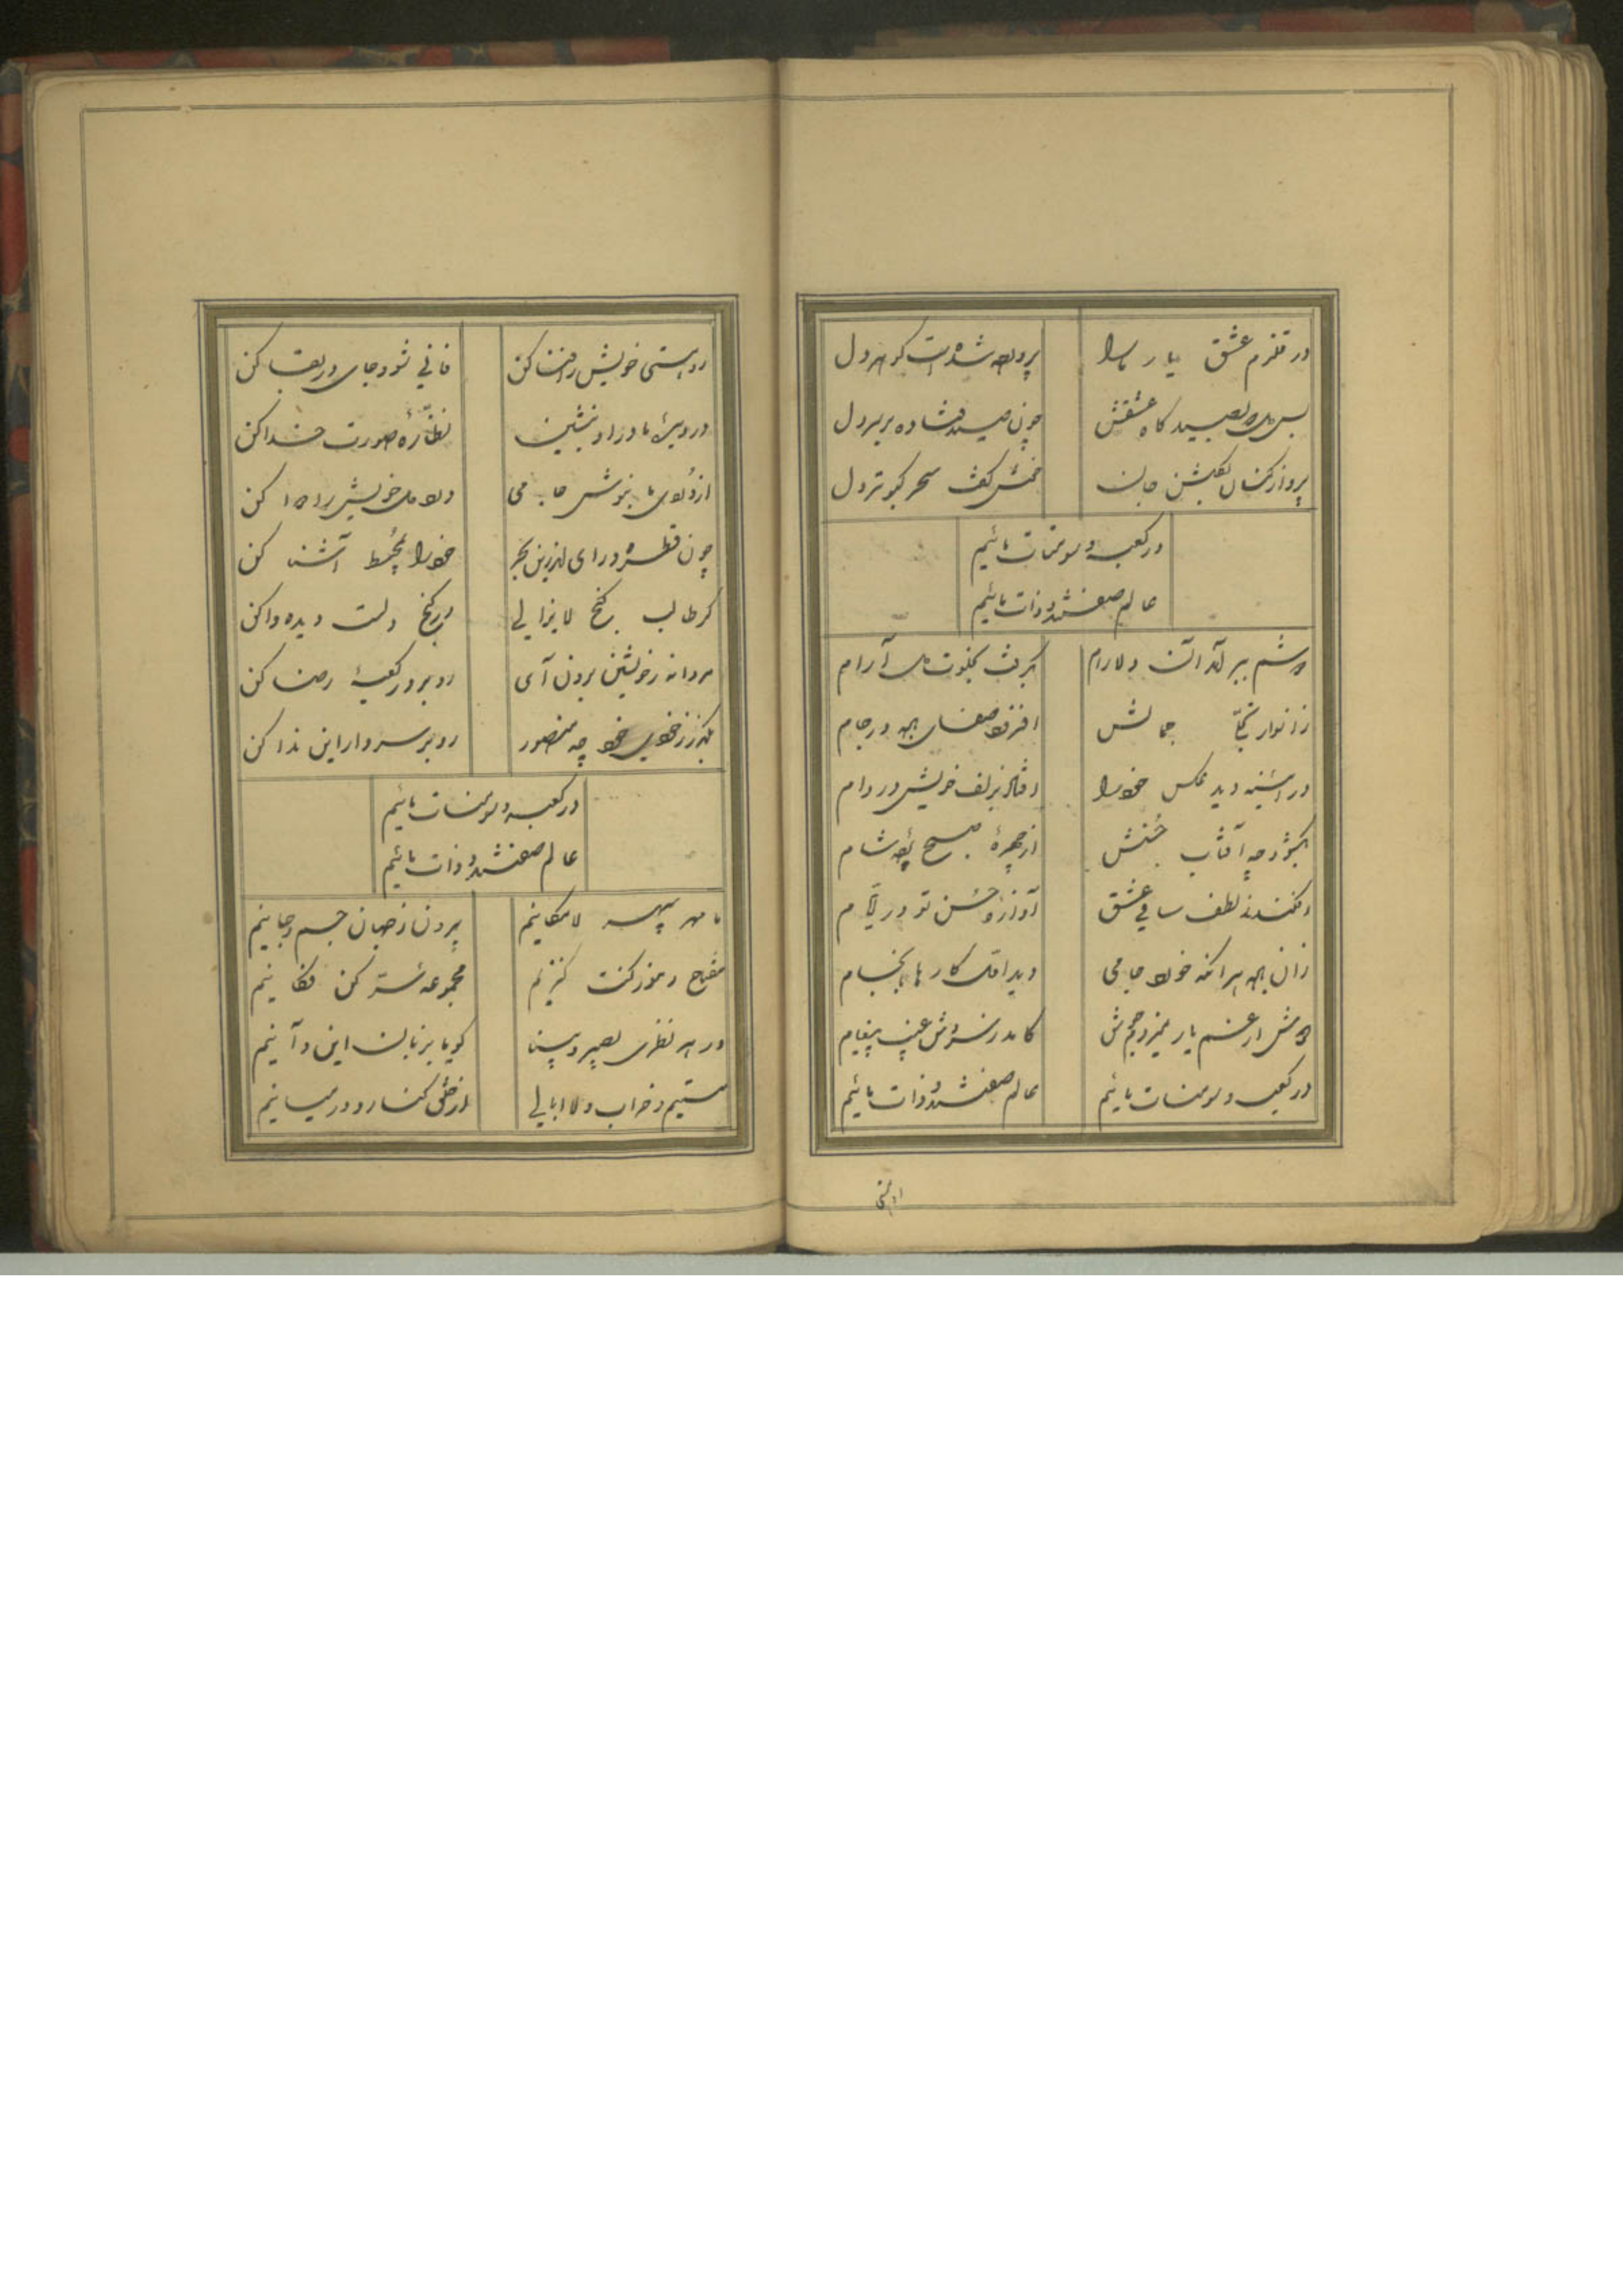 در قلزم عشق یار ما را
پرورده شدست گوهر دل
بس دیده بصیدگاه عشقش
چون صید فتاده بر سر دل
پرواز کنان بگلشن جان
خمش گفت سحر کبوتر دل
در کعبه و سومنات مائیم
عالم صفتند و ذات مائیم
دوشم ببر آمد آن دلارام
بگرفت بخلوت دل آرام
ز انوار تجلی جمالش
افزود صفای می در جام
در آینه دید عکس خود را
افتاد بزلف خویش در دام
بنمود چه آفتاب حسنش
از چهرهٔ صبح پرده شام
افکند ز لطف ساقی عشق
آوازهٔ حسن تو در ایام
زان می هر آنکه خورد جامی
دید اول کار ها بانجام
دوش از غم یار میزدم جوش
کامد ز سروش غیب پیغام
در کعبه و سومنات مائیم
عالم صفتند و ذات مائیم
رو هستی
رو هستی خویش را فنا کن
فانی شو و جای در بقا کن
در دیدهٔ ما درا و بنشین
نظّارهٔ صورت خدا کن
از دُردی ما بنوش جامی
درد دل خویش را دوا کن
چون قطره در ای اندرین بحر
خود را بمحیط آشنا کن
گر طالب گنج لایزالی
بر گنج دلت دیده وا کن
مردانه ز خویشتن برون آی
رو بر در کعبهٔ رضا کن
بگذر ز خودی خود چه منصور
رو بر سر دار این ندا کن
در کعبه و سومنات مائیم
عالم صفتند و ذات مائیم
ما مهر سپهر لامکانیم
بیرون ز جهان جسم و جانیم
مفتاح رموز کنت کنزیم
مجموعهٔ سرّ کن فکانیم
در هر نظری بصیر و بینا
گویا بزبان این و آنیم
مستیم و خراب و لاابالی
از خلق کنار و در میانیم